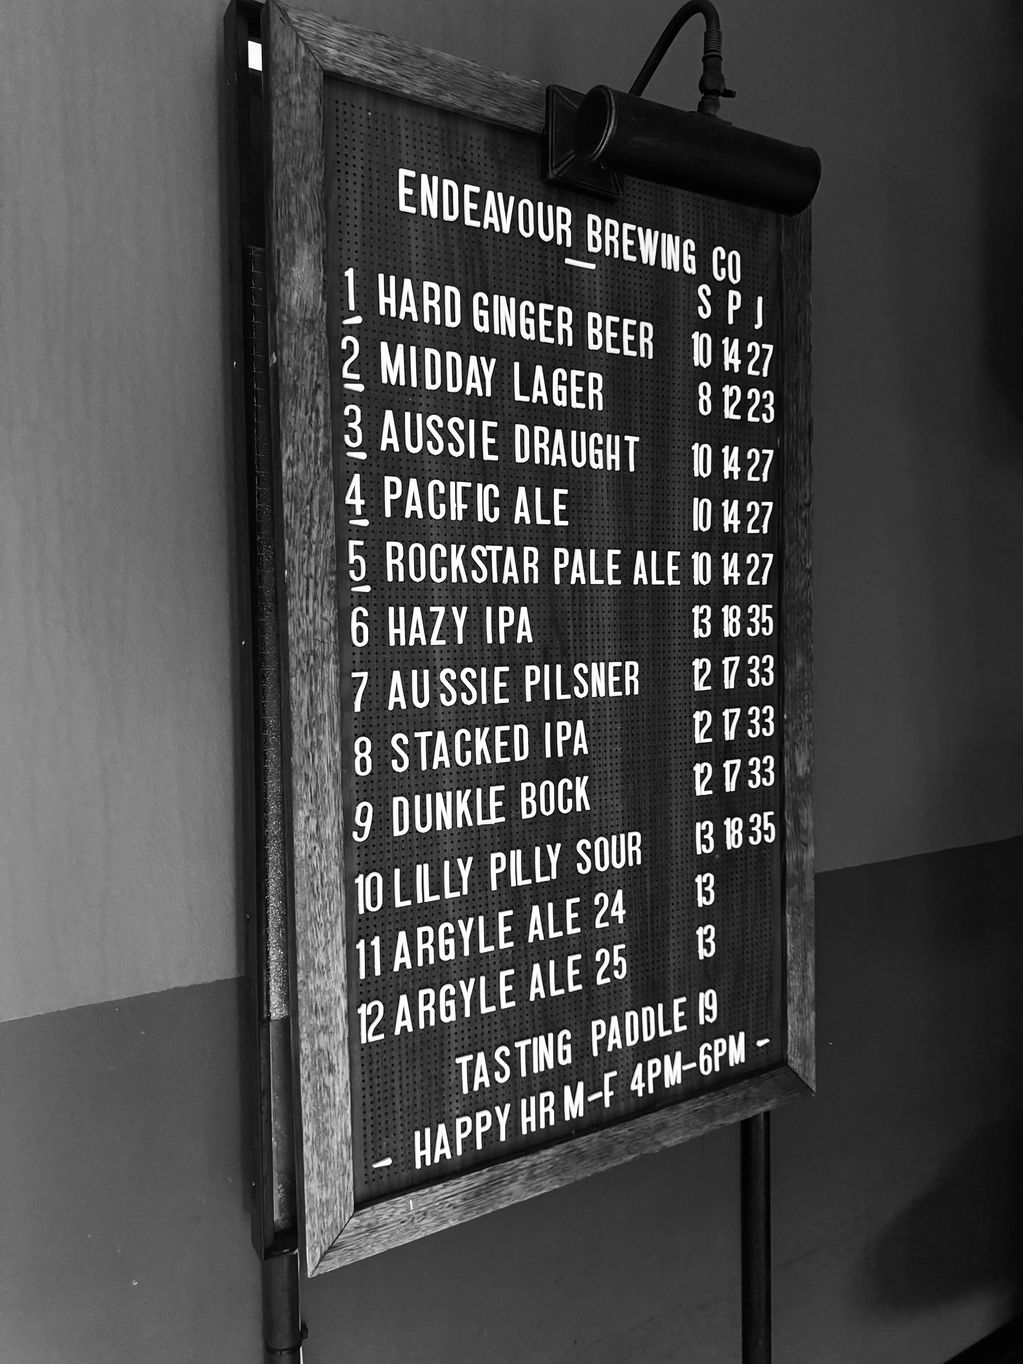 ENDEAVOUR BREWING CO
S P J
1 HARD GINGER BEER 10 14 27
2 MIDDAY LAGER 8 12 23
3 AUSSIE DRAUGHT 10 14 27
4 PACIFIC ALE 10 14 27
5 ROCKSTAR PALE ALE 10 14 27
6 HAZY IPA 13 18 35
7 AUSSIE PILSNER 12 17 33
8 STACKED IPA 12 17 33
9 DUNKLE BOCK 12 17 33
10 LILLY PILLY SOUR 13 18 35
11 ARGYLE ALE 24 13
12 ARGYLE ALE 25 13
TASTING PADDLE 19
- HAPPY HR M-F 4PM-6PM -